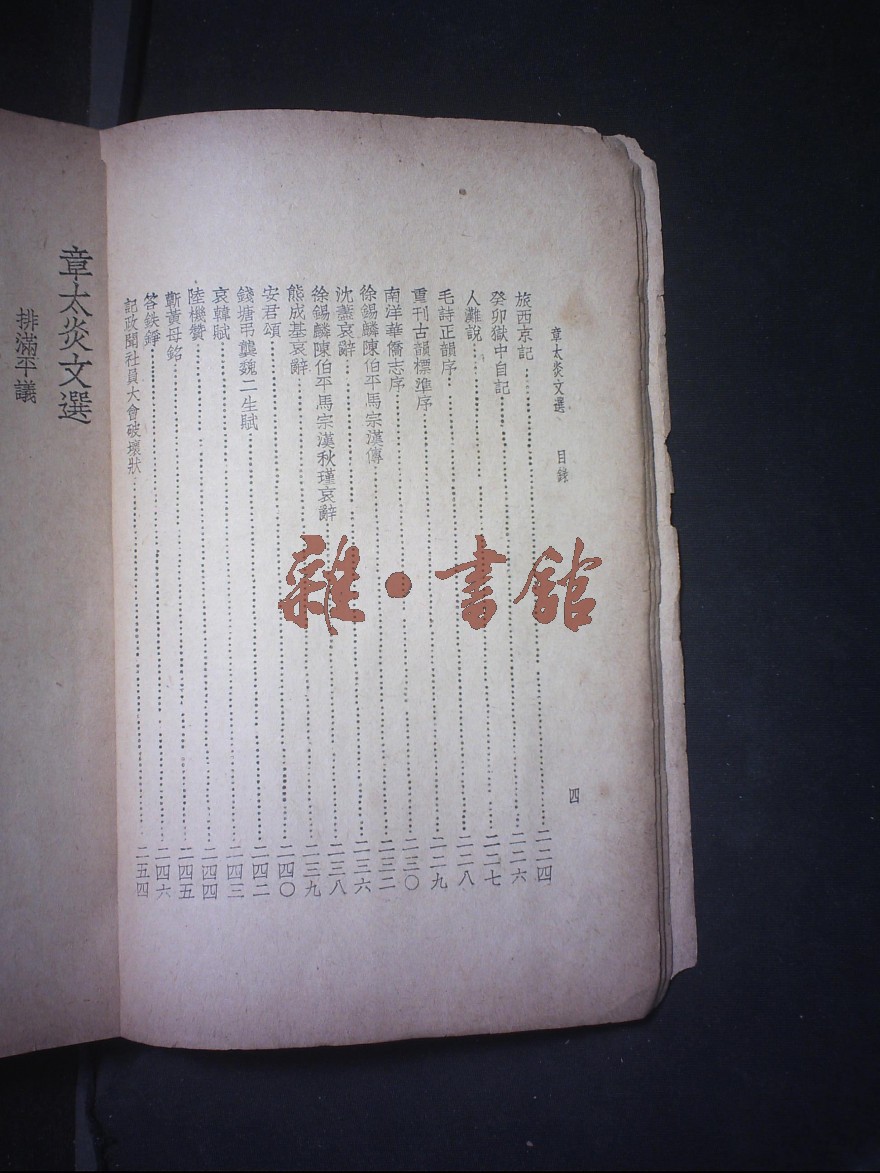 章太炎文選 目錄 四
旅西京記 二二四
癸卯獄中自記 二二六
人灘說 二二七
毛詩正韻序 二二八
重刊古韻標準序 二二九
南洋華僑志序 二三〇
徐錫麟陳伯平馬宗漢傳 二三二
沈藎哀辭 二三六
徐錫麟陳伯平馬宗漢秋瑾哀辭 二三八
熊成基哀辭 二三九
安君頌 二四〇
錢塘弔龔魏二生賦 二四二
哀韓賦 二四三
陸機贊 二四四
靳黃母銘 二四五
答鉄錚 二四六
記政聞社員大會破壞狀 二五四
章太炎文選
排滿平議
雜·書館